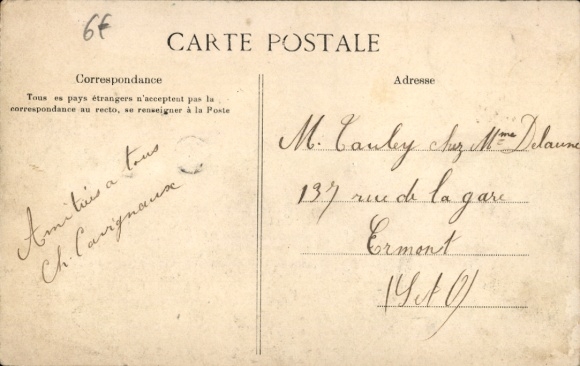 6f
CARTE POSTALE
Correspondance
Tous es pays étrangers n'acceptent pas la
correspondance au recto, se renseigner à la Poste
Amitiés a tous
Ch. Cavignaux
Adresse
M. Tauley chez Mme Delaune
137 rue de la gare
Ermont
(S et O)